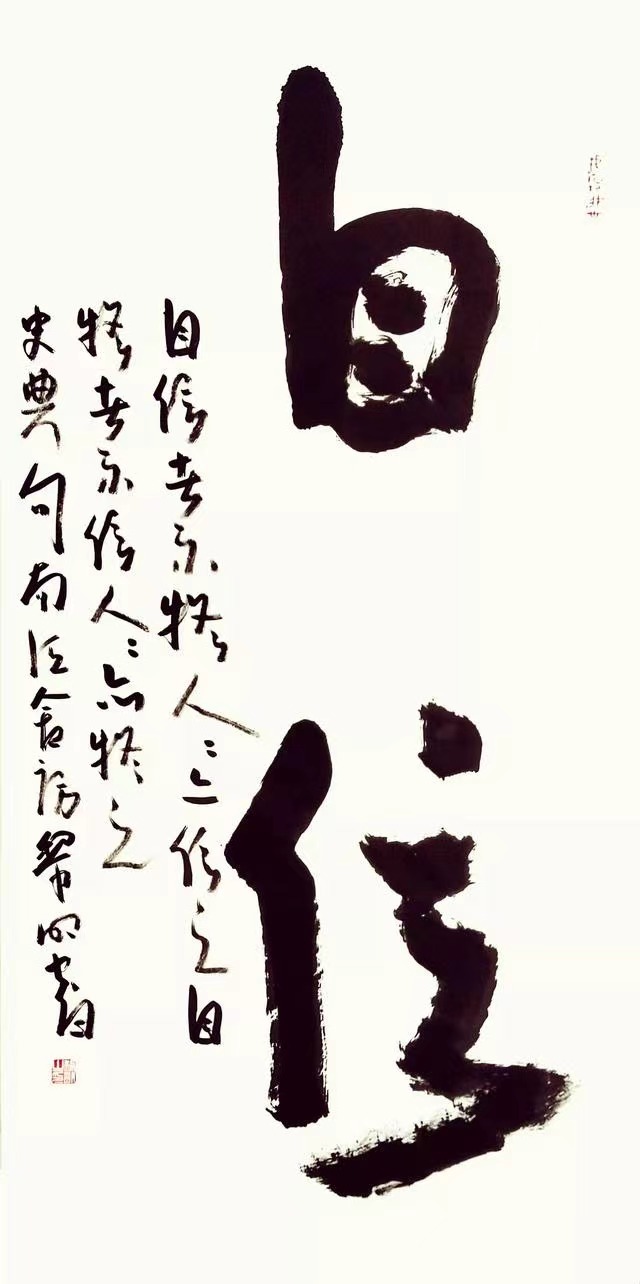 自信
自信者不疑人〻亦信之自
疑者不信人〻亦疑之
史典句